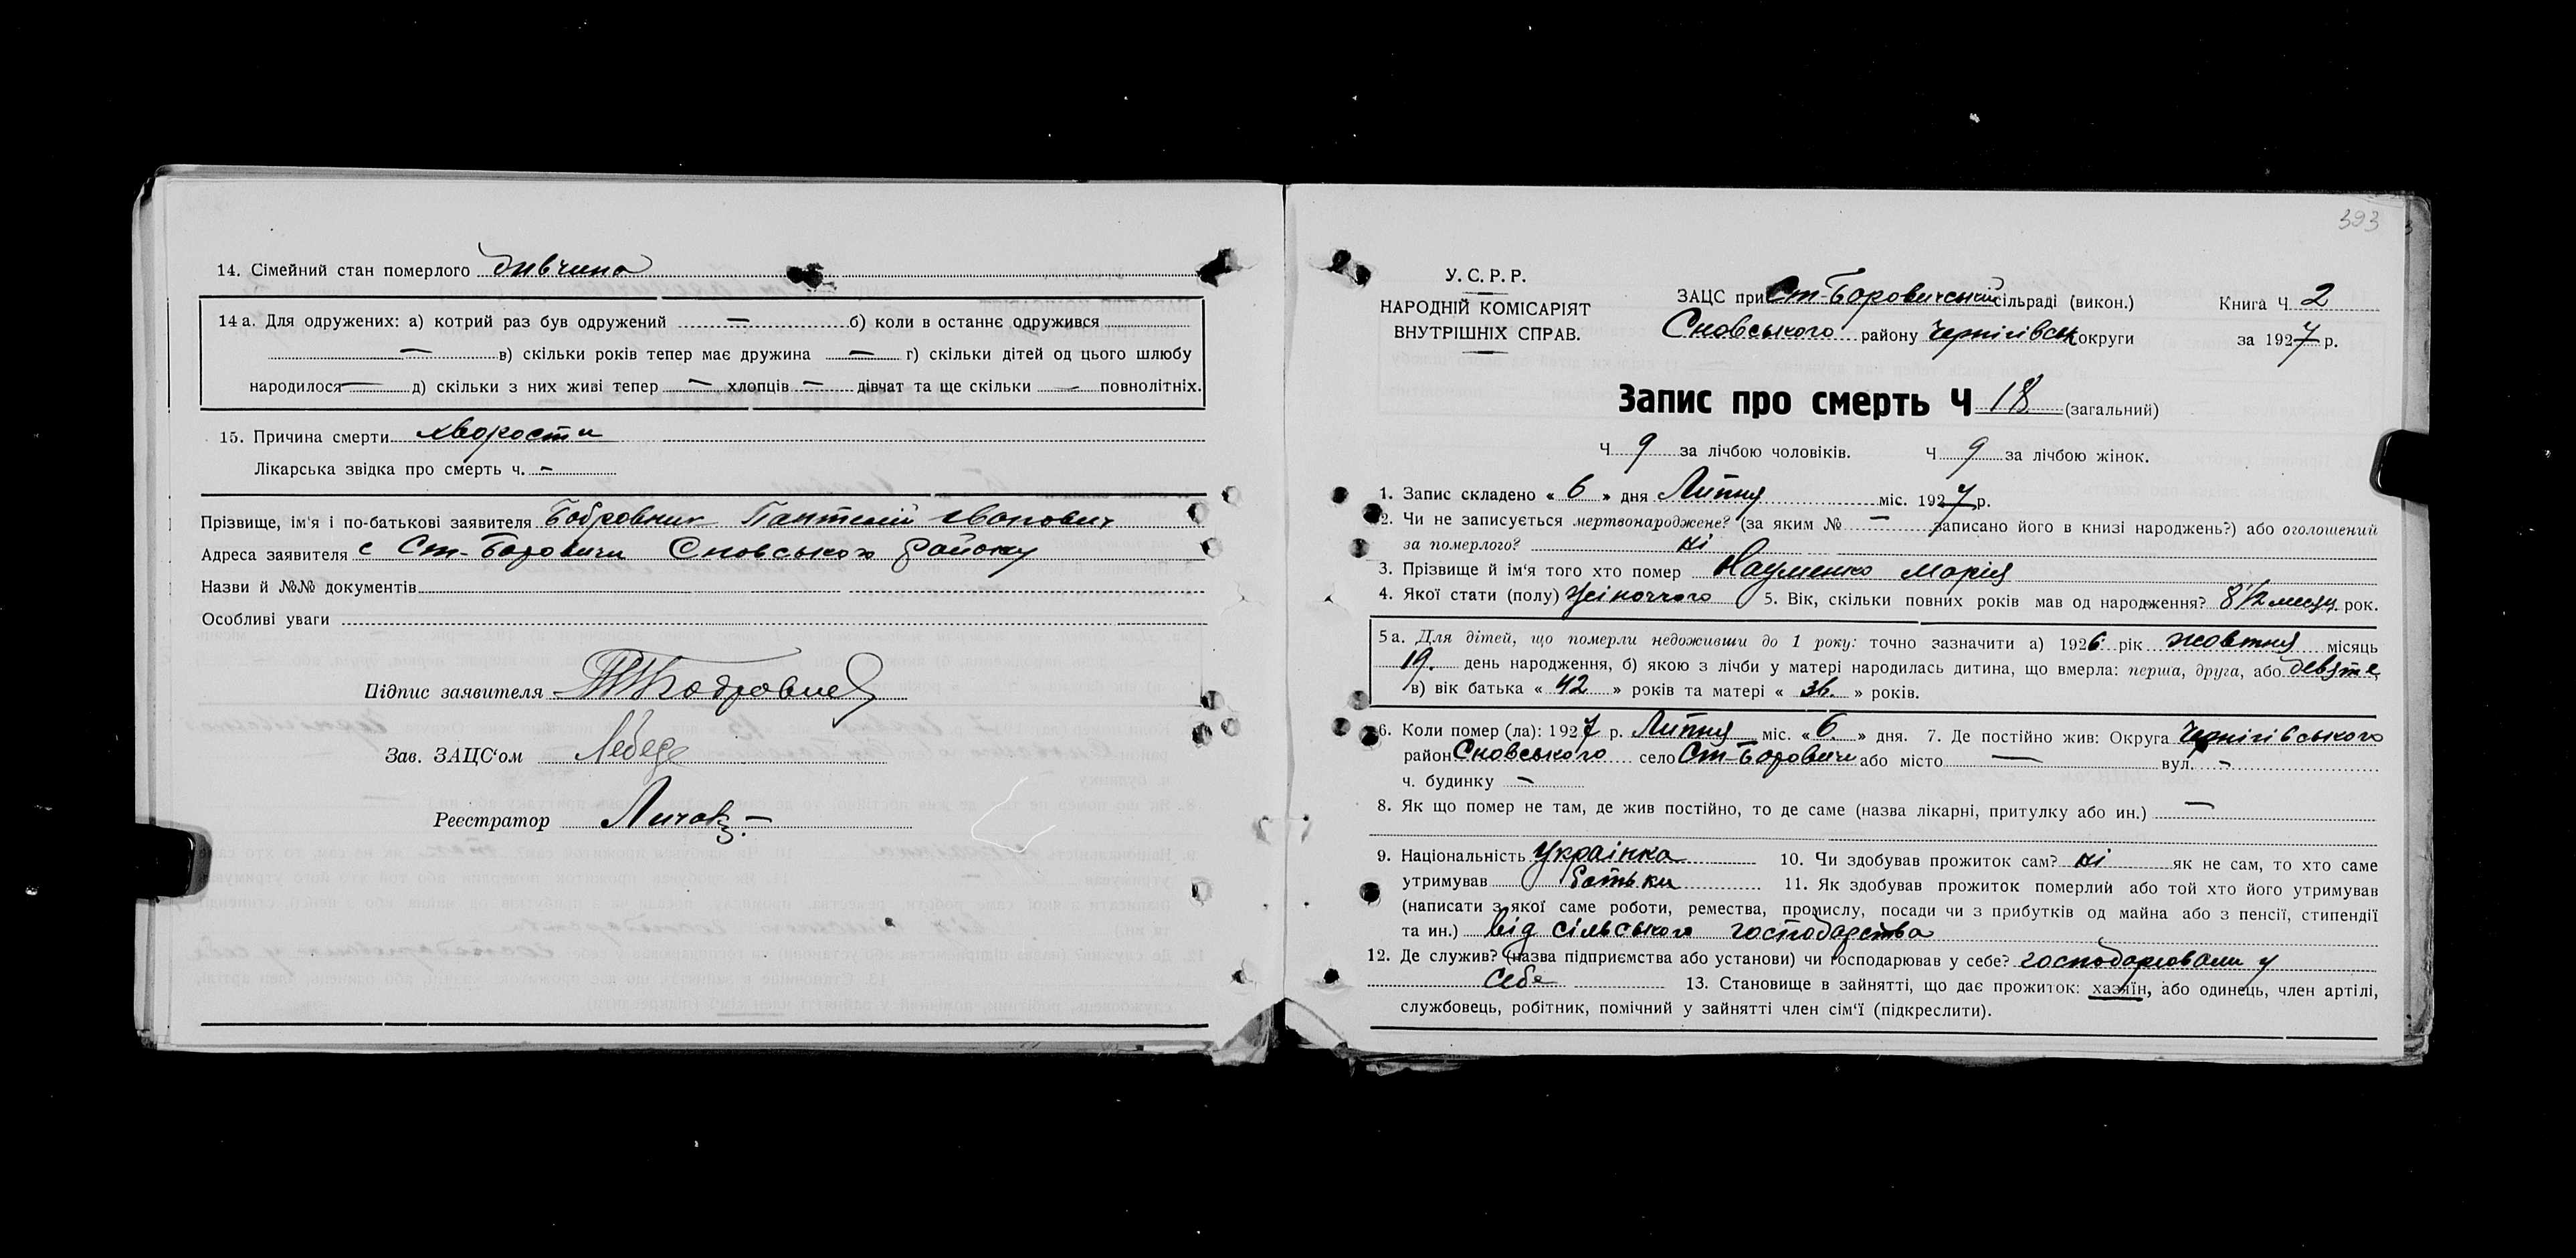 14. Сімейний стан померлого дивчина
14 а. Для одружених: а) котрий раз був одружений — б) коли в останнє одружився
— в) скільки років тепер має дружина — г) скільки дітей од цього шлюбу
народилося — д) скільки з них живі тепер — хлопців — дівчат та ще скільки — повнолітніх.
15. Причина смерти хворости
Лікарська звідка про смерть ч. –
Прізвище, ім'я і по-батькові заявителя Бобровник Пантелій Іванович
Адреса заявителя с Ст-Боровичи Сновського району
Назви й №№ документів
Особливі уваги
Підпис заявителя Бобровник
Зав. ЗАЦС'ом
Реєстратор
393
У. С. Р. Р.
НАРОДНІЙ КОМІСАРІЯТ
ВНУТРІШНІХ СПРАВ.
ЗАЦС при Ст-Боровичській сільраді (викон.)
Сновського району Чернігівськ округи
Книга Ч. 2
за 1927 р.
Запис про смерть Ч 18 (загальний)
Ч 9 за лічбою чоловіків. Ч 9 за лічбою жінок.
1. Запис складено « 6 » дня Липня міс. 1927 р.
2. Чи не записується мертвонароджене? (за яким № — записано його в книзі народжень?) або оголошений
за померлого? ні
3. Прізвище й ім'я того хто помер Науменко Марія
4. Якої стати (полу) жіночого 5. Вік, скільки повних років мав од народження? 8 1/2 месяц. рок.
5 а. Для дітей, що померли недоживши до 1 року: точно зазначити а) 1926 рік жовтня місяць
19. день народження, б) якою з лічби у матері народилась дитина, що вмерла: перша, друга, або девяте
в) вік батька « 42 » років та матері « 36. » років.
6. Коли помер (ла): 1927 р. Липня міс. « 6. » дня. 7. Де постійно жив: Округа Чернігівського
район Сновського село Ст-Боровичи або місто — вул. –
ч. будинку —
8. Як що помер не там, де жив постійно, то де саме (назва лікарні, притулку або ин.) —
9. Національність Українка 10. Чи здобував прожиток сам? ні як не сам, то хто саме
утримував батьки 11. Як здобував прожиток померлий або той хто його утримував
(написати з якої саме роботи, ремества, промислу, посади чи з прибутків од майна або з пенсії, стипендії
та ин.) від сільського господарства
12. Де служив? (назва підприємства або установи) чи господарював у себе? господарювали у
себе 13. Становище в зайнятті, що дає прожиток: хазяїн, або одинець, член артілі,
службовець, робітник, помічний у зайнятті член сім'ї (підкреслити).